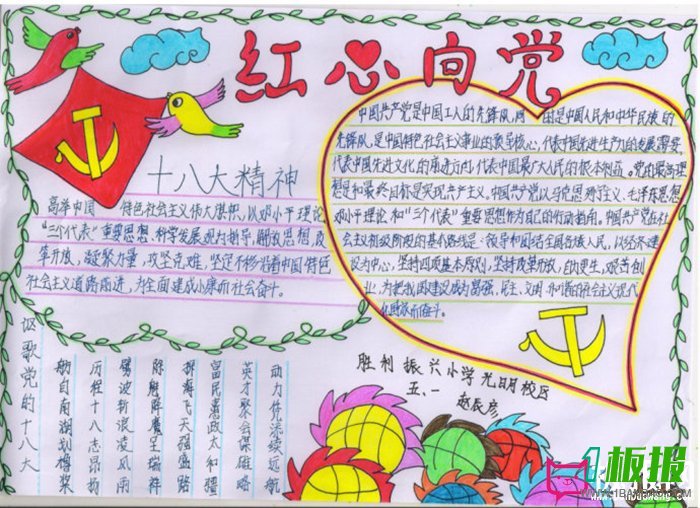 红心向党
十八大精神
高举中国特色社会主义伟大旗帜，以邓小平理论
“三个代表”重要思想，科学发展观为指导，解放思想，改
革开放，凝聚力量，攻坚克难，坚定不移沿着中国特色
社会主义道路前进，为全面建成小康而社会奋斗。
中国共产党是中国工人的先锋队，同
是中国人民和中华民族的
先锋队，是中国特色社会主义事业的领导核心，代表中国先进生产力的发展要求，
代表中国先进文化的前进方向，代表中国最广大人民的根本利益。党的最高理
想是和最终目标是实现共产主义。中国共产党以马克思列宁主义、毛泽东思想、
邓小平理论和“三个代表”重要思想作为自己的行动指南。中国共产党在社
会主义初级阶段的基本路线是：领导和团结全国各族人民，以经济建
设为中心，坚持四项基本原则，坚持改革开放，自力更生，艰苦创
业，为把我国建设成为富强、民主、文明、和谐的社会主义现代
化国家而奋斗。
讴歌党的十八大
舫自南湖划橹桨
历程十八志昂扬
劈波斩浪凌风雨
除魅降魔呈瑞祥
探海飞天强盛路
富民惠政太和疆
英才聚会谋雄略
动力传递续远航
胜利振兴小学光明校区
五.一
赵辰彦
板报